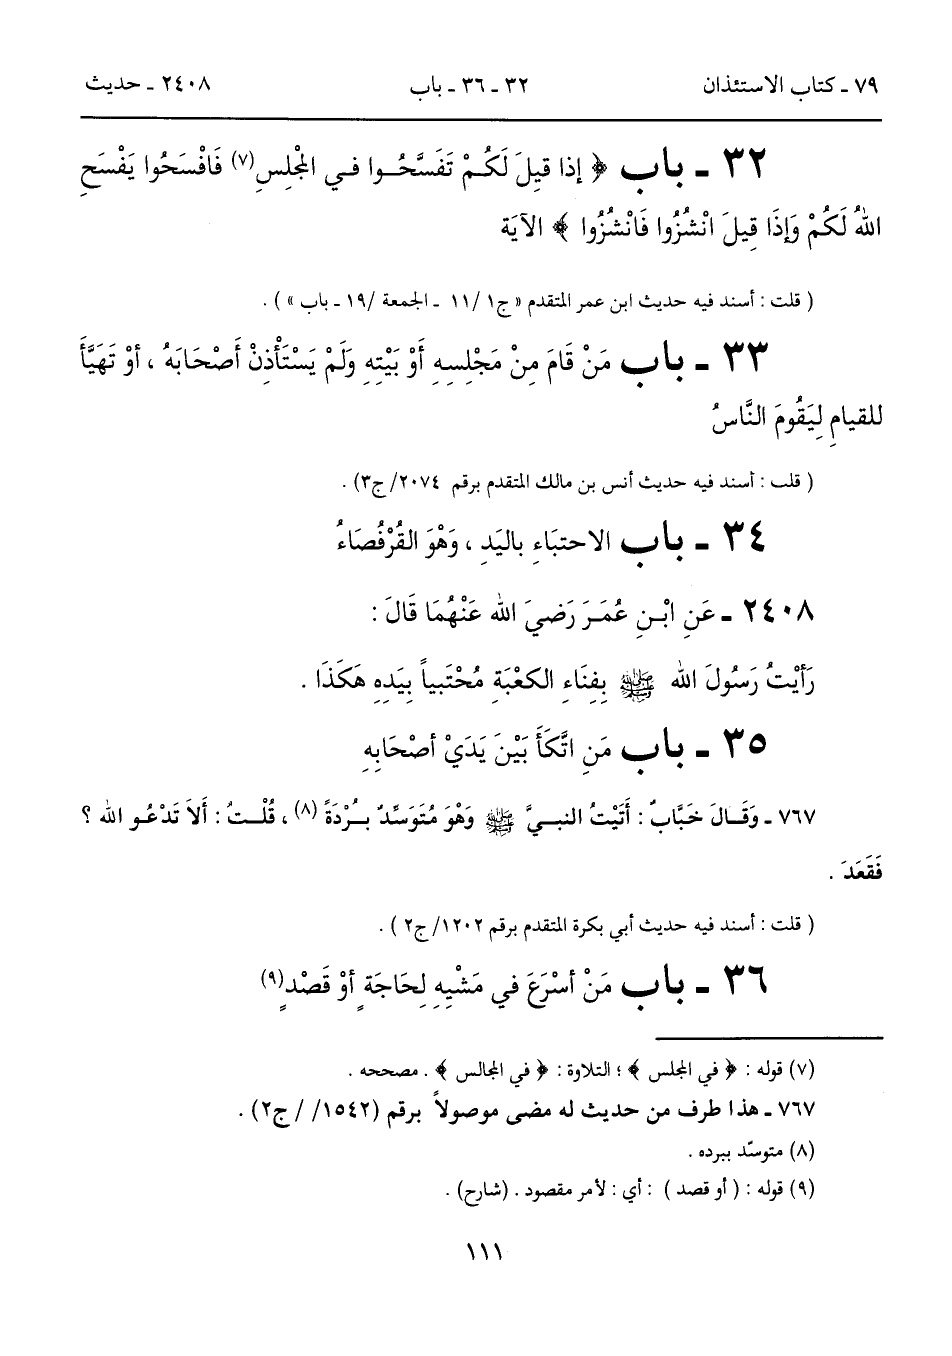 ٧٩ ـ كتاب الاستئذان
٣٢ ـ ٣٦ ـ باب
٢٤٠٨ ـ حديث
٣٢ ـ باب ﴿ إذا قيِلَ لَكُمْ تَفَسَّحُوا في المْجْلِسِ(٧) فَافْسَحُوا يَفْسَحِ
اللهُ لَكُمْ وَإذَا قِيلَ انْشُزُوا فَانْشُزُوا ﴾ الآيَة
( قلت : أسند فيه حديث ابن عمر المتقدم « ج١ /١١ ـ الجمعة /١٩ ـ باب » ) .
٣٣ ـ باب مَنْ قَامَ مِنْ مَجْلِسِهِ أَوْ بَيْتِهِ وَلَمْ يَسْتَأْذِنْ أَصْحَابَهُ ، أوْ تَهَيَّأَ
للقيامِ لِيَقُومَ النَّاسُ
( قلت : أسند فيه حديث أنس بن مالك المتقدم برقم ٢٠٧٤/ ج٣) .
٣٤ ـ باب الاحتبَاءِ باليَدِ ، وَهْوَ القُرْفُصَاءُ
٢٤٠٨ ـ عَنِ ابْنِ عُمَرَ رَضيَ الله عَنْهُمَا قَالَ :
رَأيْتُ رَسُولَ الله ﷺ بِفِنَاءِ الكعْبَةِ مُحْتَبياً بِيَدِهِ هَكَذَا .
٣٥ ـ باب مَنِ اتَّكَأَ بَيْنَ يَدَيْ أصْحَابِهِ
٧٦٧ ـ وَقَالَ خَبَّابٌ : أَتَيْتُ النبيَّ ﷺ وَهْوَ مُتَوَسِّدٌ بُرْدَةً (٨) ، قُلْتُ : أَلاَ تَدْعُو الله ؟
فَقَعَدَ .
( قلت : أسند فيه حديث أبي بكرة المتقدم برقم ١٢٠٢/ ج٢ ) .
٣٦ ـ باب مَنْ أسْرَعَ في مَشْيِهِ لِحَاجَةٍ أوْ قَصْدٍ(٩)
(٧) قوله : ﴿ في المجلس ﴾ ؛ التلاوة : ﴿ في المجالس ﴾ . مصححه .
٧٦٧ ـ هذا طرف من حديث له مضى موصولاً برقم (١٥٤٢/ / ج٢) .
(٨) متوسّد ببرده .
(٩) قوله : ( أو قصد ) : أي : لأمر مقصود . (شارح) .
١١١